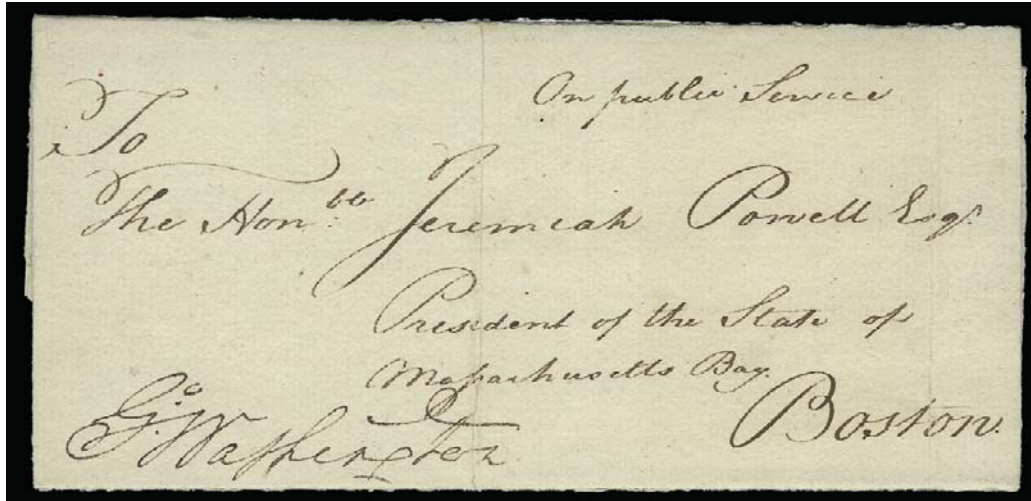 On public Service
To
The Hon.ble Jeremiah Powell Esq.
President of the State of
Massachusetts Bay.
Boston.
Go. Washington